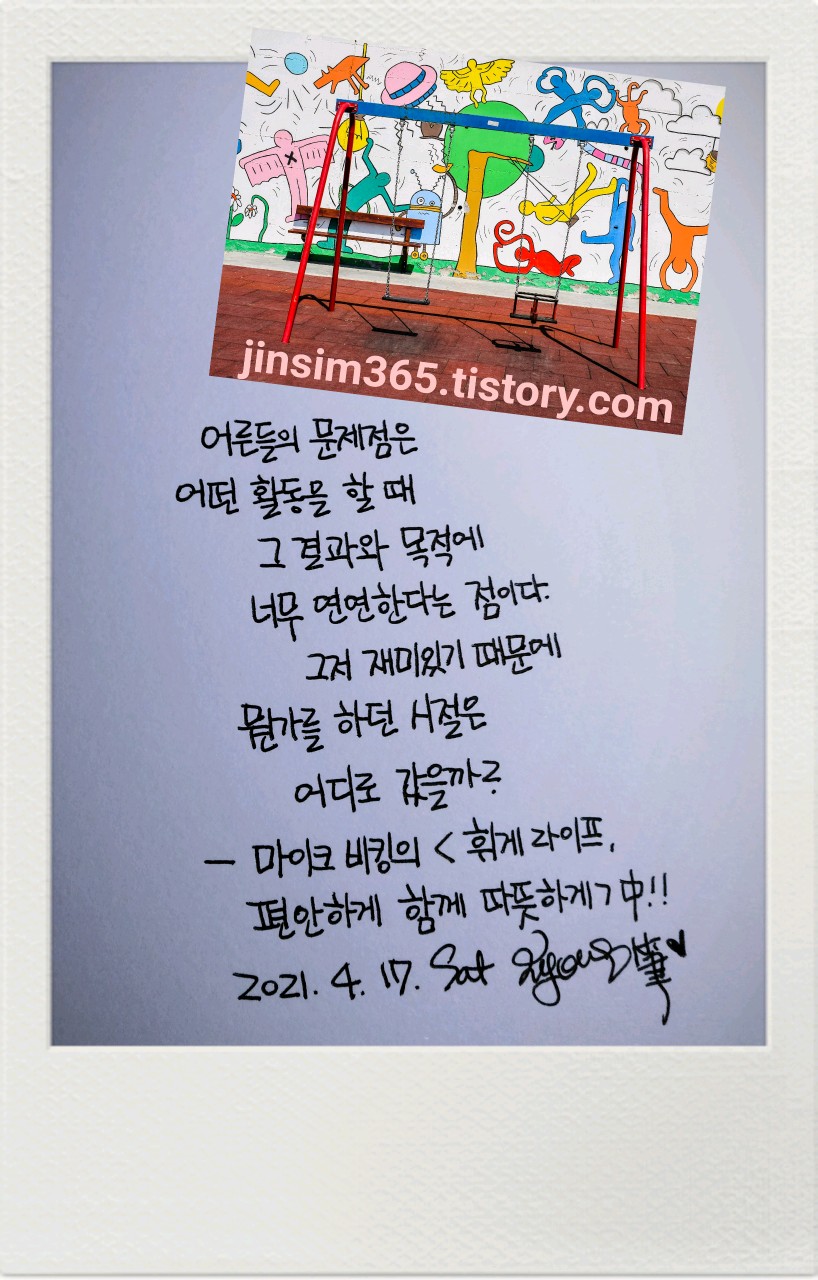 jinsim365.tistory.com
어른들의 문제점은
어떤 활동을 할 때
그 결과와 목적에
너무 연연한다는 점이다.
그저 재미있기 때문에
뭔가를 하던 시절은
어디로 갔을까?
- 마이크 비킹의 < 휘게 라이프,
편안하게 함께 따뜻하게> 中!!
2021. 4. 17. Sat